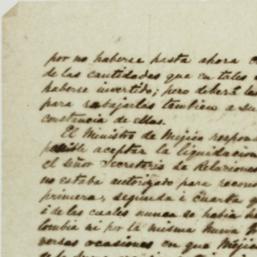 por no haberse hasta ahora
de las cantidades que en tales
haberse invertido; pero deberá
para rebajarlas tambien a su
constancia de ellas.
El Ministro de Mejico
aceptar la liquidacion
el señor Secretario de Relaciones
no estaba autorizado para
primera, segunda i cuarta
i de las cuales nunca se habia
lombia ni por la misma Nueva
versas ocasiones en que